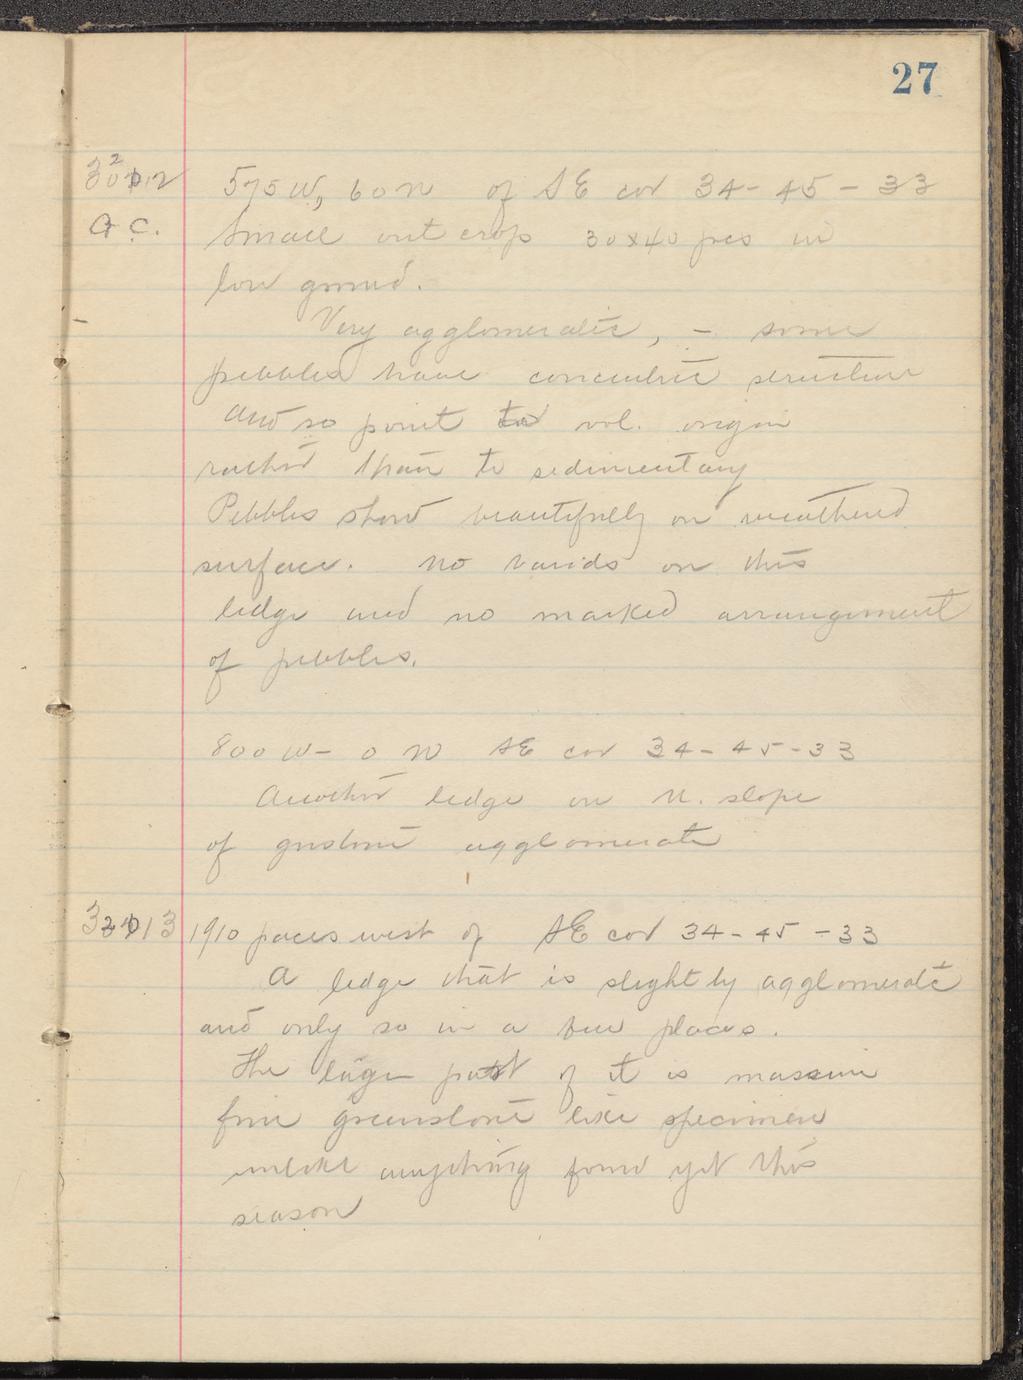 27
575 W, 60 N of SE cor 34-45-33
G.C.
Small out crop 30x40 pcs in
low ground.
Very agglomeratic, - some
pebbles have concentric structure
and so point to vol. origin
rather than to sedimentary
Pebbles show beautifully on weathered
surface. No on this
ledge and no marked arrangement
of pebbles.
800 W - 0 N SE cor 34-45-33
Another ledge on N. slope
of agglomerate
1910 paces west of SE cor 34-45-33
A ledge that is slightly agglomeratic
and only so in a few places.
The larger part of it is massive
fine greenstone like specimen
unlike anything found yet this
season